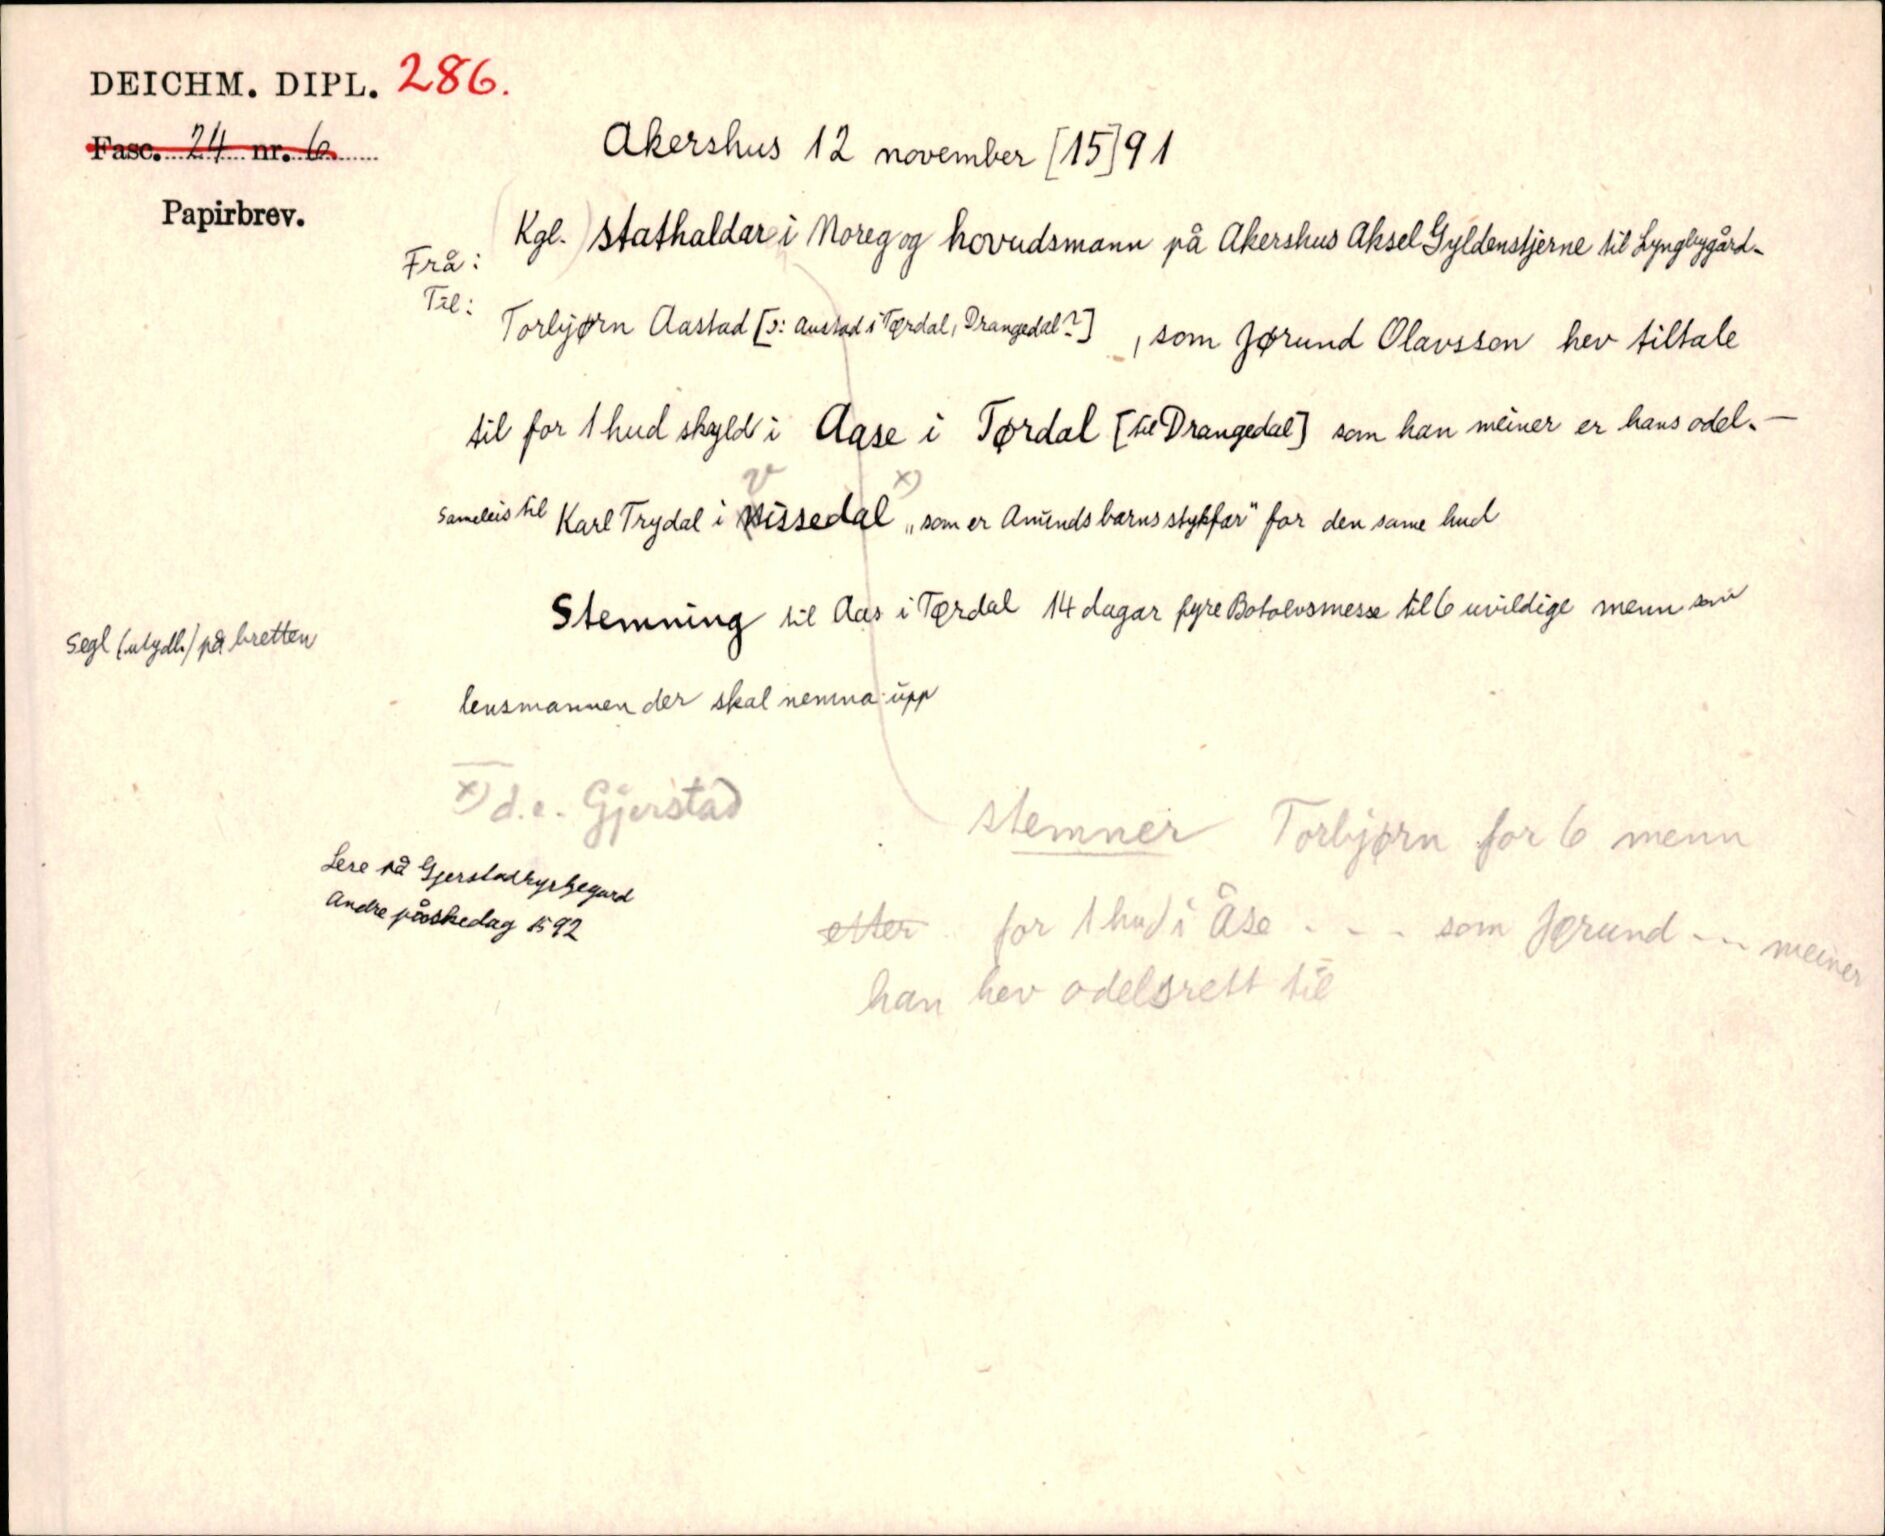 DEICHM. DIPL. 286.
Fasc. 24 nr. 6
Papirbrev.
Akershus 12 november [15]91
Frå: (Kgl.) stathaldar i Noreg og hovudsmann på Akershus Aksel Gyldenstjerne til Lyngbygård.
Til: Torbjørn Aastad [ɔ: Austad i Tørdal, Drangedal?], som Jørund Olavsson hev tiltale
til for 1 hud skyld i Aase i Tørdal [til Drangedal] som han meiner er hans odel. —
Sameleis til Karl Trydal i Vissedal x) „som er Amunds barns stykfar" for den same hud
Stemning til Aas i Tørdal 14 dagar fyre Botolvsmesse til 6 uvildige menn som
lensmannen der skal nemna upp
Segl (utydl.) på bretten
x) d.e. Gjerstad
Lese på Gjerstadkyrkjegard
Andre påskedag 1592
stemner Torbjørn for 6 menn
etter for 1 hud i Åse . - - som Jørund - - - meiner
han hev odelsrett til